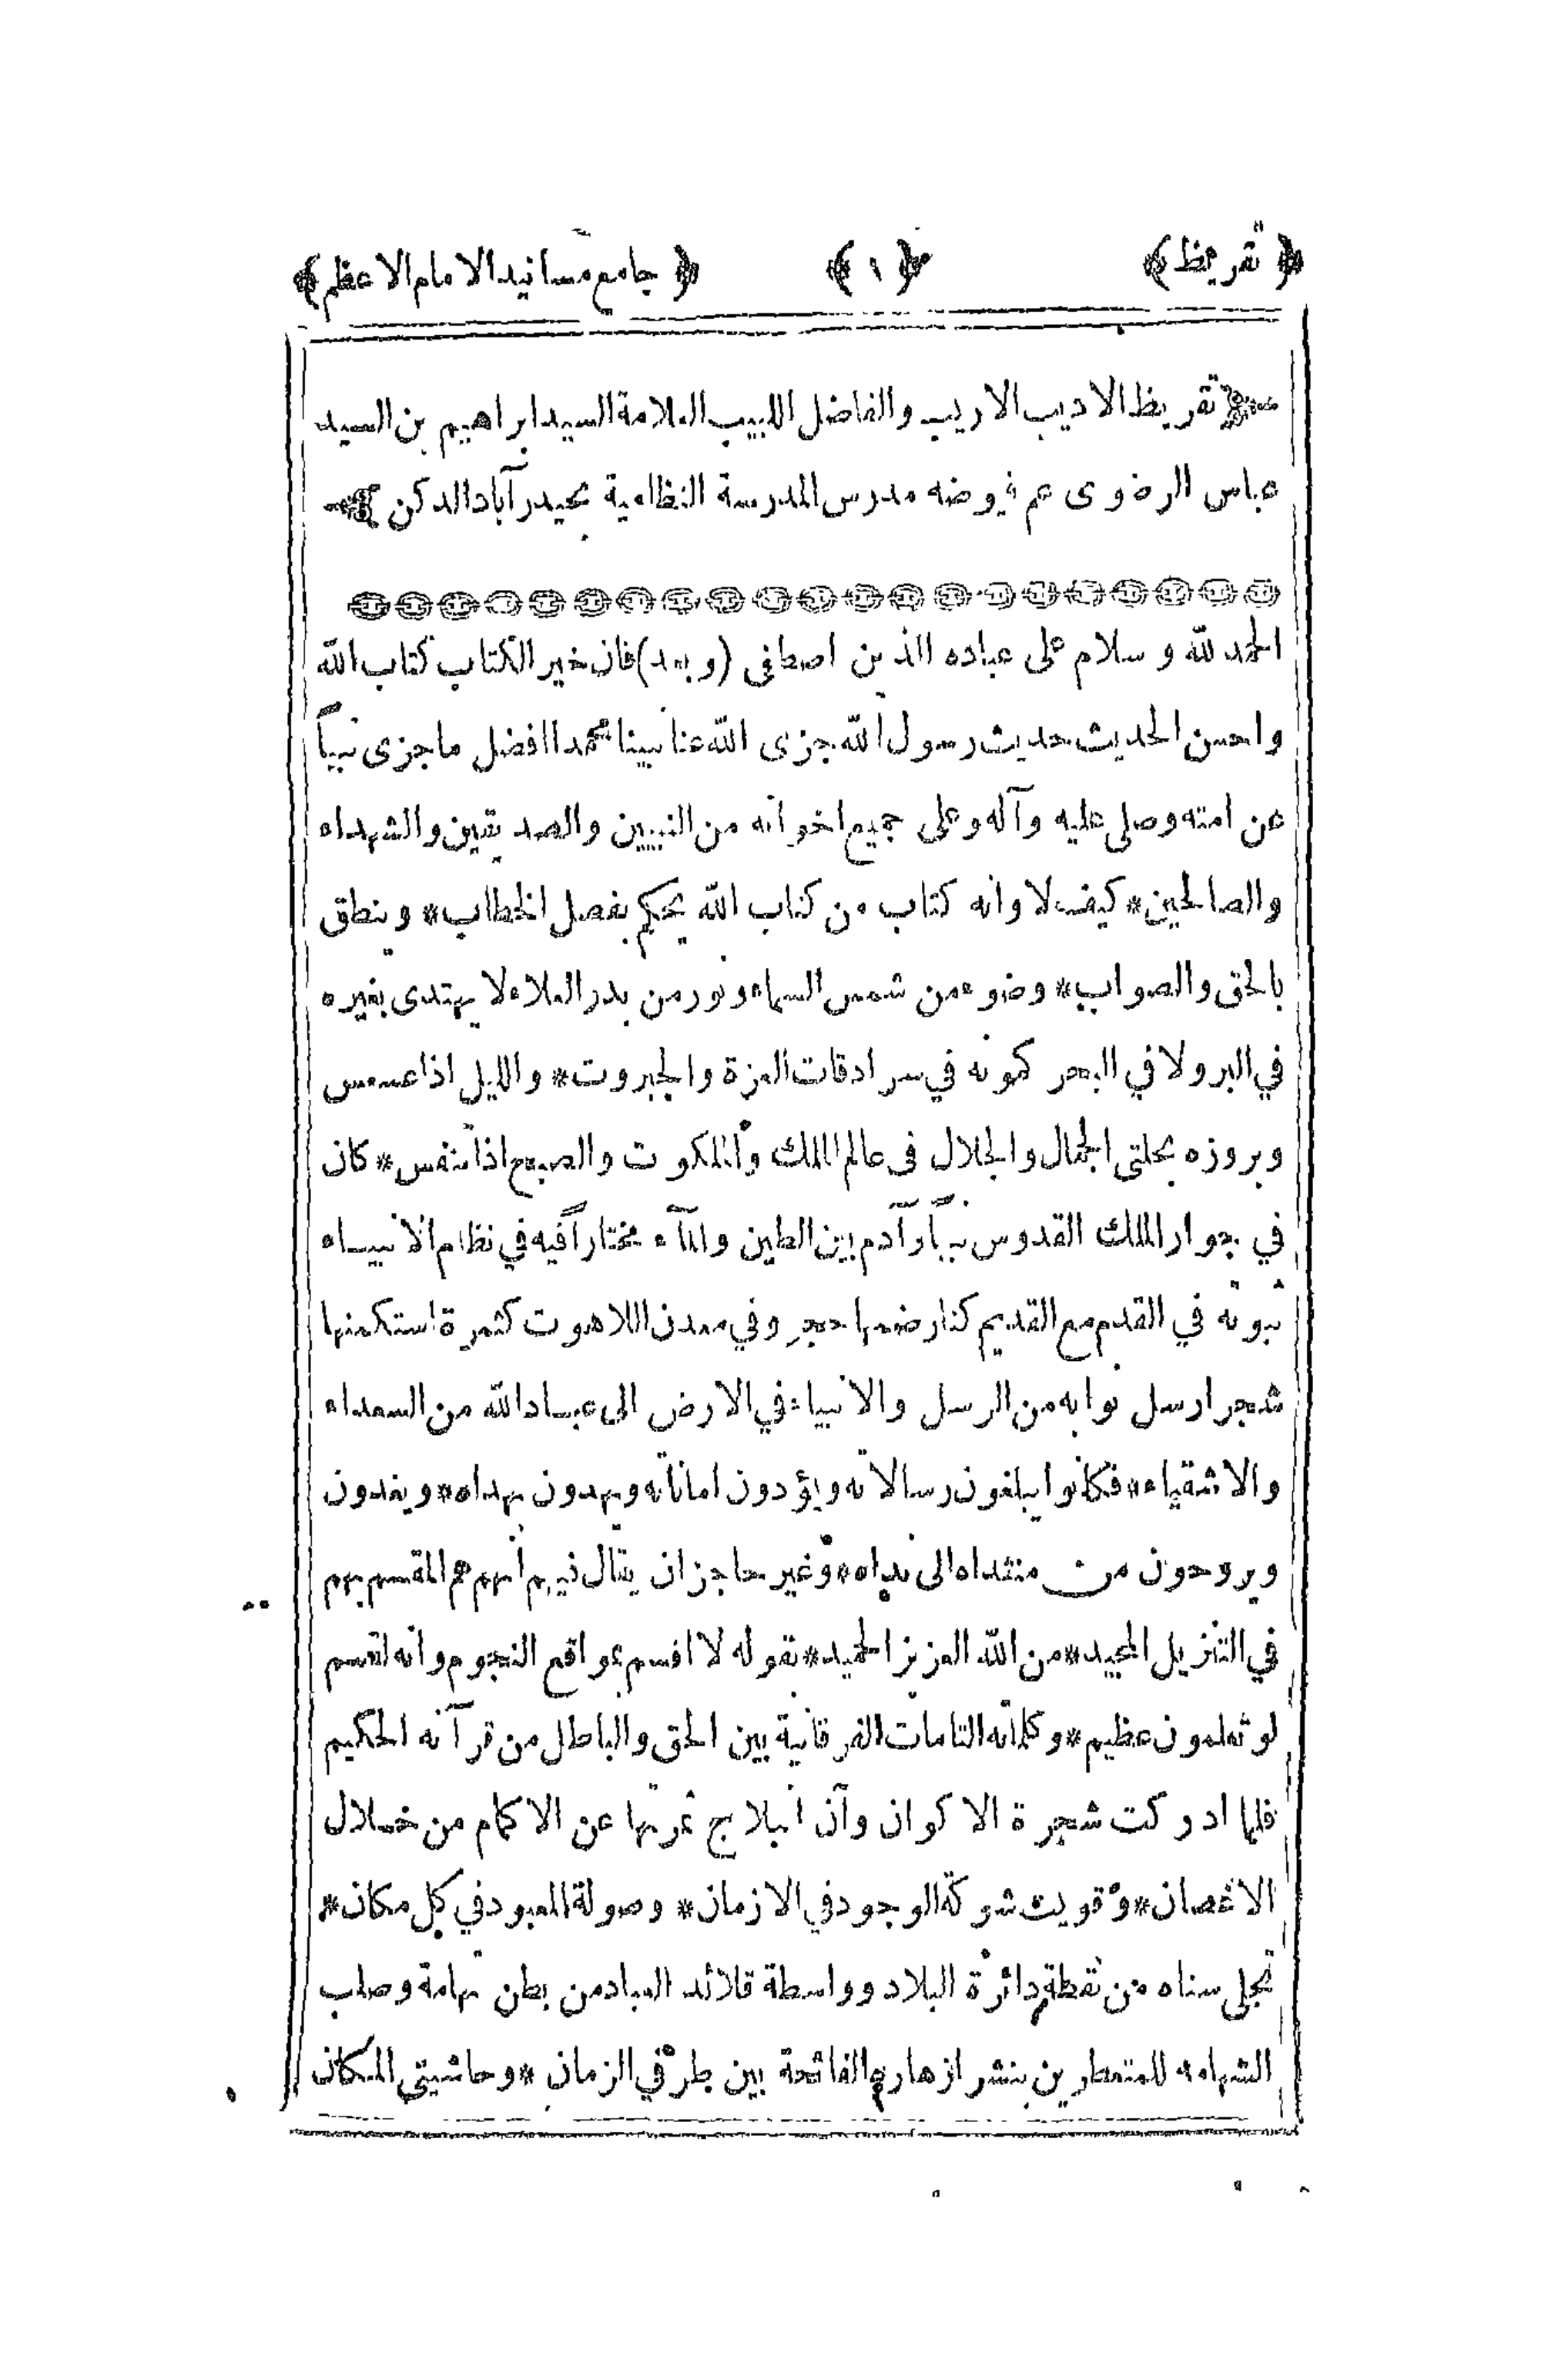 ﴿ تقريظ ﴾ ﴿ ١ ﴾ ﴿ جامع مسانيد الامام الاعظم ﴾
تقريظ الاديب الاريب والفاضل اللبيب العلامة السيد ابراهيم بن السيد
عباس الرضوى عم فيوضه مدرس المدرسة النظامية بحيدرآباد الدكن
الحمد لله و سلام على عباده الذين اصطفى (و بعد) فان خير الكتاب كتاب الله
واحسن الحديث حديث رسول الله جزى الله عنا نبينا محمدا افضل ما جزى نبياً
عن امته وصلى عليه وآله وعلى جميع اخوانه من النبيين والصديقين والشهداء
والصالحين* كيف لا وانه كتاب من كتاب الله يحكم بفصل الخطاب* وينطق
بالحق والصواب* وضوء من شمس السماء ونور من بدر العلاء لا يهتدى بغيره
في البر ولا في البحر كمونه في سرادقات العزة والجبروت* والليل اذا عسعس
وبروزه بحلتى الجمال والجلال فى عالم الملك والملكوت والصبح اذا تنفس* كان
في جوار الملك القدوس نبياً وآدم بين الطين والمآء مختاراً فيه في نظام الانبياء
ثبوته في القدم مع القديم كنار ضمها حجر وفي معدن اللاهوت كثمرة استكمنها
شجر ارسل نوابه من الرسل والانبياء في الارض الى عباد الله من السعداء
والاشقياء* فكانوا يبلغون رسالاته ويؤدون اماناته ويهدون بهداه* ويغدون
ويروحون من منتداه الى نداه* وغير حاجز ان يقال فيهم انهم هم المقسم بهم
في التنزيل المجيد* من الله العزيز الحميد* بقوله لا اقسم بمواقع النجوم وانه لقسم
لو تعلمون عظيم* وكلماته التامات الفرقانية بين الحق والباطل من قرآنه الحكيم
فلما ادركت شجرة الاكوان وآن انبلاج ثمرتها عن الاكمام من خلال
الاغصان* وقويت شوكة الوجود في الازمان* وصولة المعبود في كل مكان*
تجلى سناه من نقطة دائرة البلاد وواسطة قلائد العباد من بطن تهامة وصلب
الشهامه للمتعطرين بنشر ازهاره الفائحة بين طرفي الزمان* وحاشيتى المكان